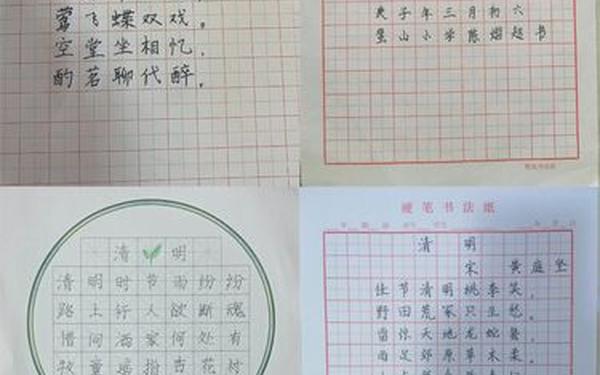 莺飞蝶双戏。
空堂坐相忆，
酌茗聊代醉。
庚子年三月初六
垡山小学陈熠赵书
清明
清明时节雨纷纷
路上行人欲断魂
借问酒家何处有
牧童遥指杏花村
硬笔书法纸
清明
宋 黄庭坚
佳节清明桃李笑，
野田荒冢只生愁。
雷惊天地龙蛇蛰，
雨足郊原草木柔。